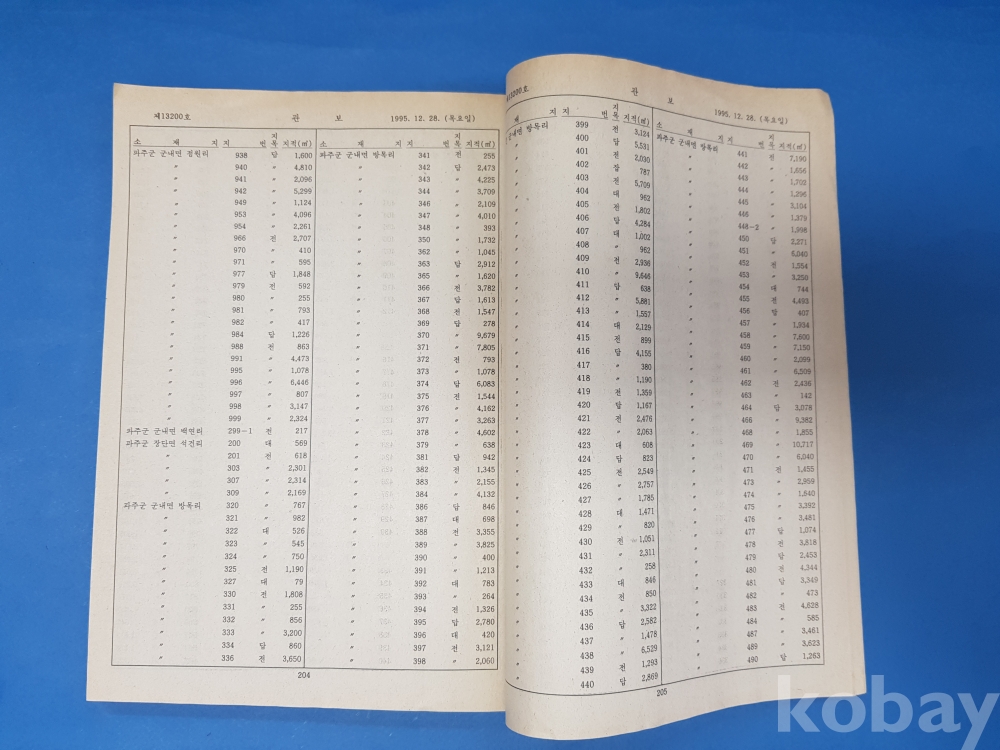 제13200호 관 보 1995. 12. 28. (목요일)
소 재 지 지번 지목 지적(㎡)
파주군 군내면 점원리 938 답 1,600
〃 940 〃 4,810
〃 941 〃 2,096
〃 942 〃 5,299
〃 949 〃 1,124
〃 953 〃 4,096
〃 954 〃 2,261
〃 966 전 2,707
〃 970 〃 410
〃 971 〃 595
〃 977 답 1,848
〃 979 전 592
〃 980 〃 255
〃 981 〃 793
〃 982 〃 417
〃 984 답 1,226
〃 988 전 863
〃 991 〃 4,473
〃 995 〃 1,078
〃 996 〃 6,446
〃 997 〃 807
〃 998 〃 3,147
〃 999 〃 2,324
파주군 군내면 백연리 299-1 전 217
파주군 장단면 석곶리 200 대 569
〃 201 전 618
〃 303 〃 2,301
〃 307 〃 2,314
〃 309 〃 2,169
파주군 군내면 방목리 320 〃 767
〃 321 〃 982
〃 322 대 526
〃 323 〃 545
〃 324 〃 750
〃 325 전 1,190
〃 327 대 79
〃 330 전 1,808
〃 331 〃 255
〃 332 〃 856
〃 333 〃 3,200
〃 334 답 860
〃 336 전 3,650
소 재 지 지번 지목 지적(㎡)
파주군 군내면 방목리 341 전 255
〃 342 답 2,473
〃 343 〃 4,225
〃 344 〃 3,709
〃 346 〃 2,109
〃 347 〃 4,010
〃 348 〃 393
〃 350 〃 1,732
〃 362 〃 1,045
〃 363 답 2,912
〃 365 〃 1,620
〃 366 전 3,782
〃 367 답 1,613
〃 368 전 1,547
〃 369 답 278
〃 370 〃 9,679
〃 371 〃 7,805
〃 372 전 793
〃 373 〃 1,078
〃 374 답 6,083
〃 375 전 1,544
〃 376 〃 4,162
〃 377 〃 3,263
〃 378 〃 4,602
〃 379 〃 638
〃 381 답 942
〃 382 전 1,345
〃 383 〃 2,155
〃 384 〃 4,132
〃 386 답 846
〃 387 대 698
〃 388 전 3,355
〃 389 〃 3,825
〃 390 〃 400
〃 391 〃 1,213
〃 392 대 783
〃 393 〃 264
〃 394 전 1,326
〃 395 답 2,780
〃 396 대 420
〃 397 전 3,121
〃 398 〃 2,060
204
제13200호 관 보 1995. 12. 28. (목요일)
재 지 지번 지목 지적(㎡)
군내면 방목리 399 전 3,124
〃 400 답 5,531
〃 401 전 2,030
〃 402 787
〃 403 전 5,709
〃 404 대 962
〃 405 전 1,802
〃 406 답 4,284
〃 407 대 1,002
〃 408 〃 962
〃 409 전 2,936
〃 410 〃 9,646
〃 411 답 638
〃 412 〃 5,881
〃 413 〃 1,557
〃 414 대 2,129
〃 415 전 899
〃 416 답 4,155
〃 417 〃 380
〃 418 〃 1,190
〃 419 전 1,359
〃 420 답 1,167
〃 421 전 2,476
〃 422 〃 2,063
〃 423 대 608
〃 424 답 823
〃 425 전 2,549
〃 426 〃 2,757
〃 427 〃 1,785
〃 428 대 1,471
〃 429 〃 820
〃 430 전 1,051
〃 431 〃 2,311
〃 432 〃 258
〃 433 대 846
〃 434 전 850
〃 435 〃 3,322
〃 436 답 2,582
〃 437 〃 1,478
〃 438 〃 6,529
〃 439 전 1,293
〃 440 답 2,869
소 재 지 지번 지목 지적(㎡)
파주군 군내면 방목리 441 전 7,190
〃 442 〃 1,656
〃 443 〃 1,702
〃 444 〃 1,296
〃 445 〃 3,104
〃 446 〃 1,379
〃 448-2 〃 1,998
〃 450 답 2,271
〃 451 〃 6,040
〃 452 전 1,554
〃 453 〃 3,250
〃 454 대 744
〃 455 전 4,493
〃 456 답 407
〃 457 〃 1,934
〃 458 〃 7,600
〃 459 〃 7,150
〃 460 〃 2,099
〃 461 〃 6,509
〃 462 전 2,436
〃 463 〃 142
〃 464 답 3,078
〃 466 〃 9,382
〃 468 〃 1,855
〃 469 〃 10,717
〃 470 〃 6,040
〃 471 전 1,455
〃 473 〃 2,959
〃 474 〃 1,540
〃 475 〃 3,392
〃 476 〃 3,481
〃 477 답 1,074
〃 478 전 3,818
〃 479 답 2,453
〃 480 전 4,344
〃 481 답 3,349
〃 482 〃 473
〃 483 전 4,628
〃 484 〃 585
〃 487 〃 3,461
〃 489 〃 3,623
〃 490 답 1,263
205
kobay